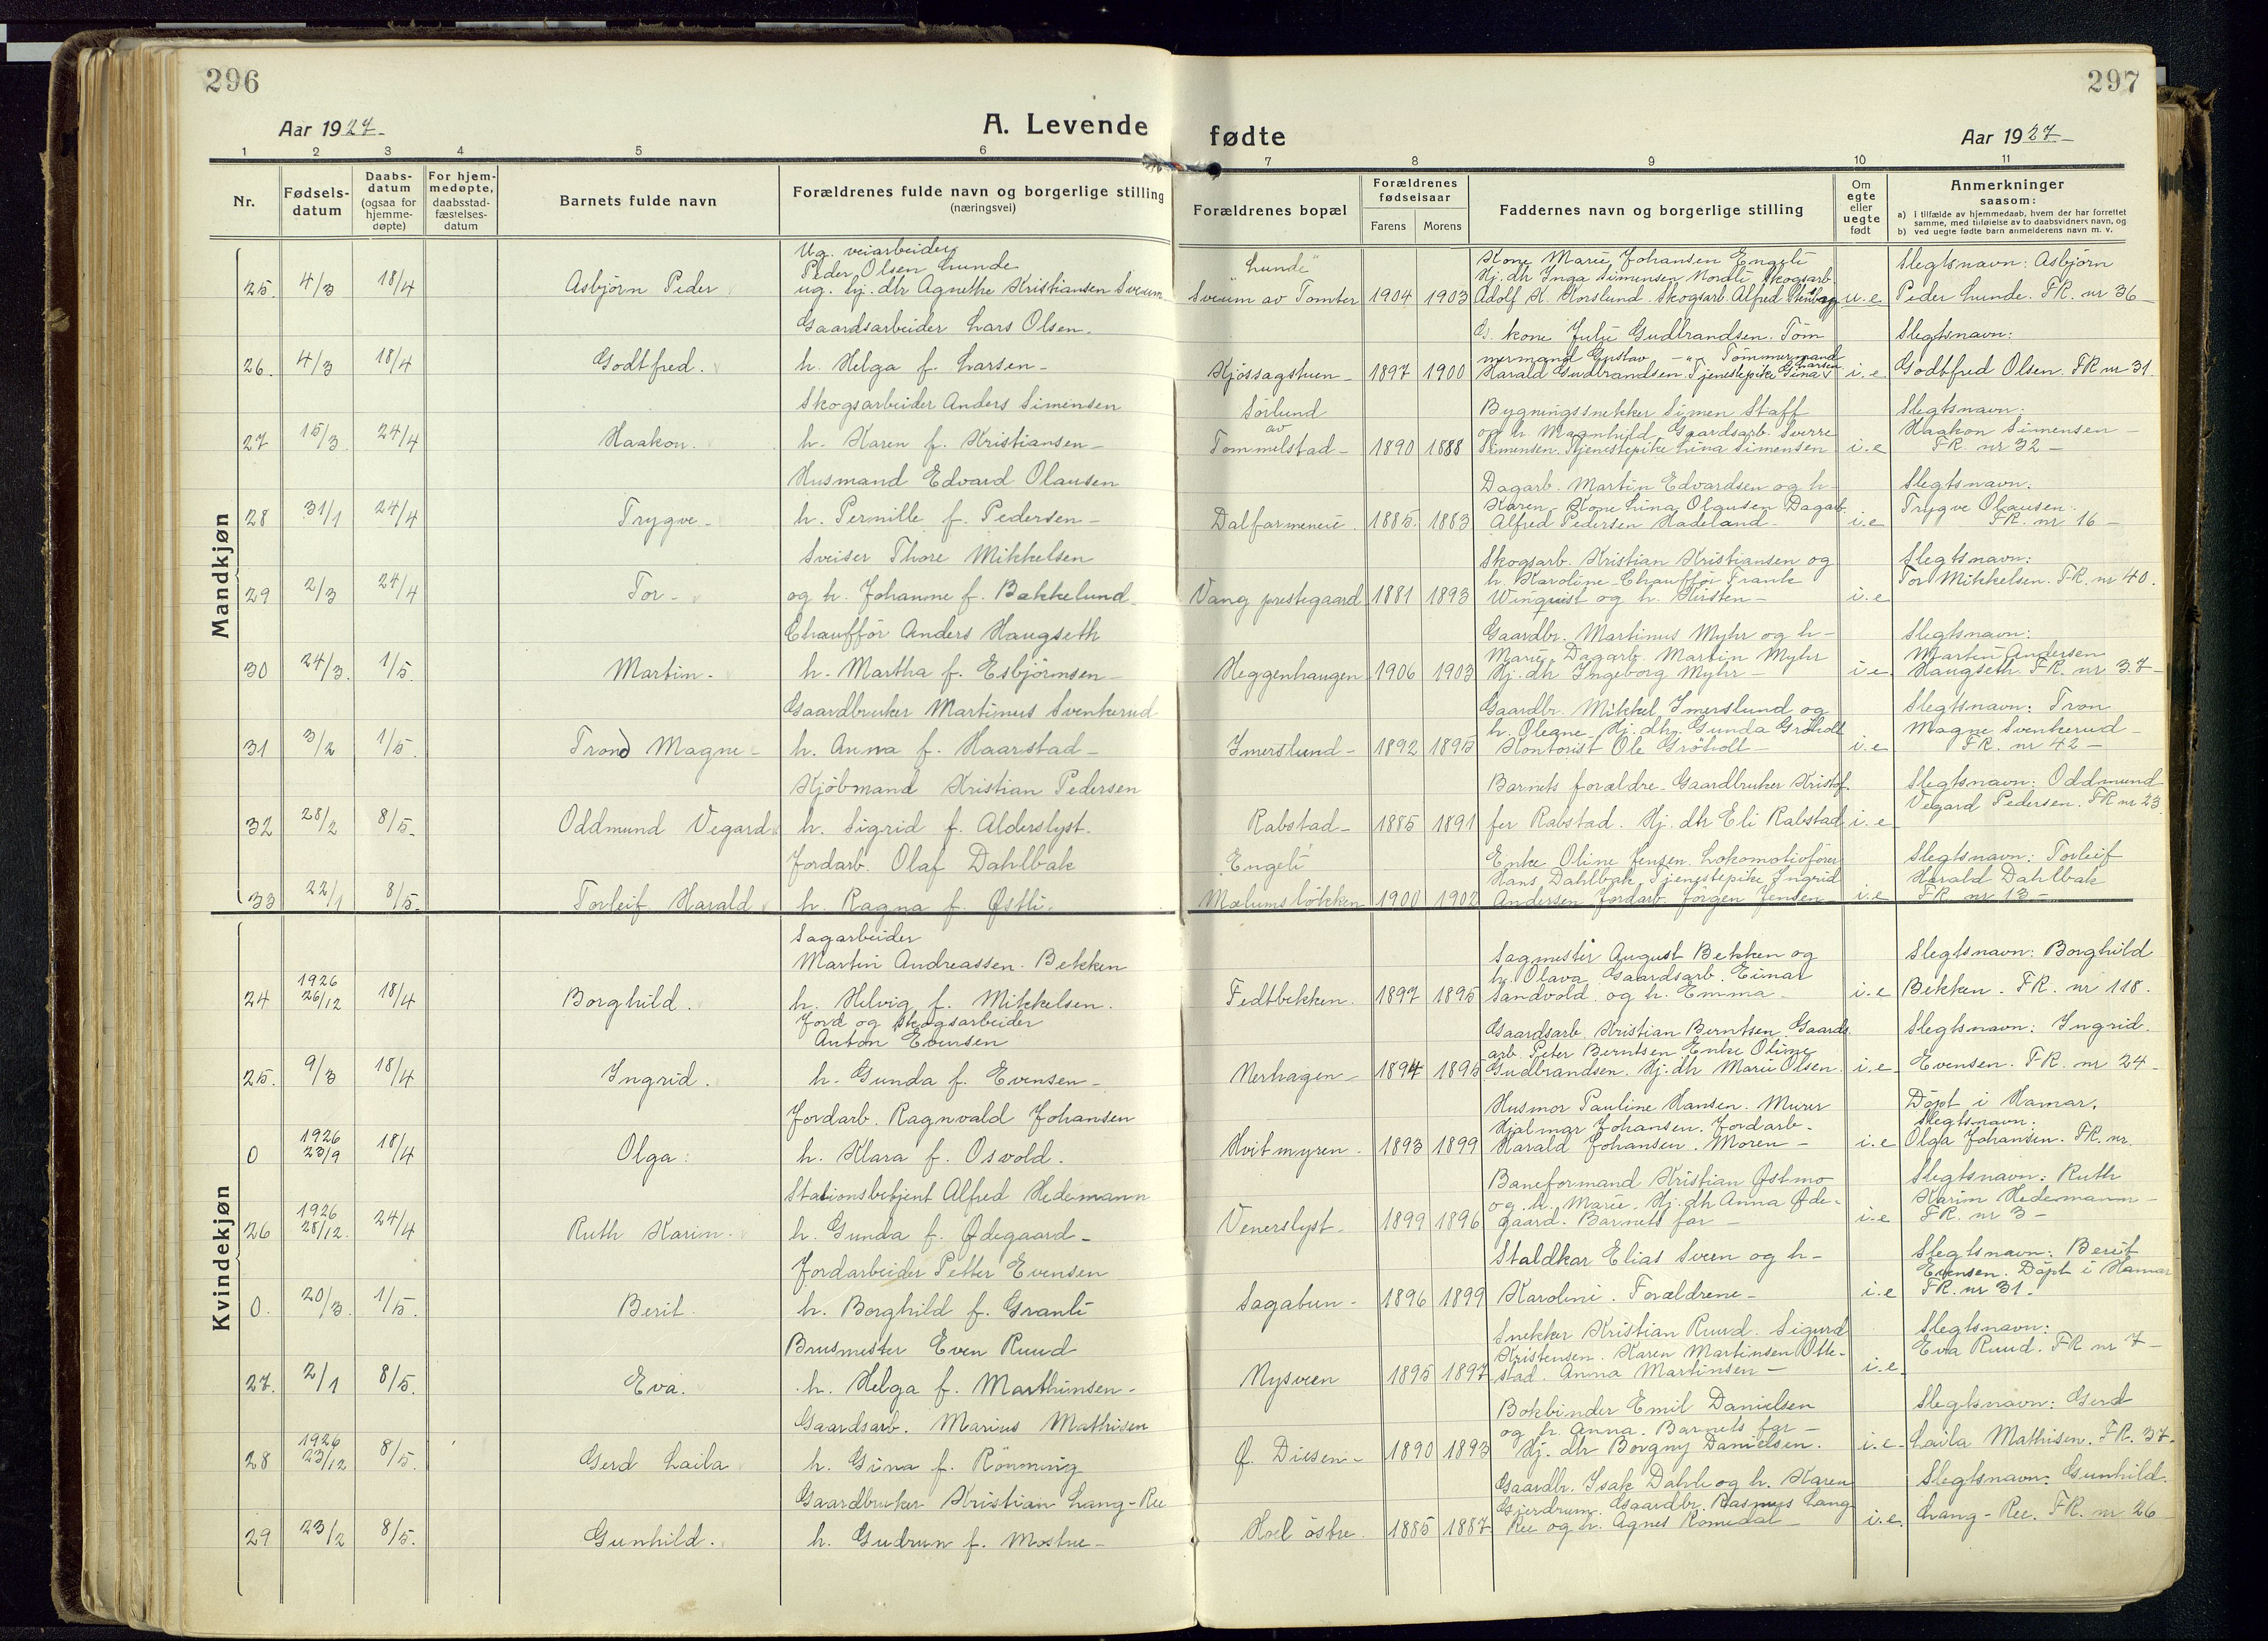 296
297
Aar 1927-
A. Levende
fødte
Aar 1927-
1 2 3 4 5 6 7 8 9 10 11
Nr.
Fødsels-
datum
Daabs-
datum
(ogsaa for
hjemme-
døpte)
For hjem-
medøpte,
daabsstad-
fæstelses-
datum
Barnets fulde navn
Forældrenes fulde navn og borgerlige stilling
(næringsvei)
Forældrenes bopæl
Forældrenes
fødselsaar
Farens Morens
Faddernes navn og borgerlige stilling
Om
egte
eller
uegte
født
Anmerkninger
saasom:
a) i tilfælde av hjemmedaab, hvem der har forrettet
samme, med tilføielse av to daabsvidners navn, og
b) ved uegte fødte barn anmelderens navn m. v.
Mandkjøn
25. 4/3 18/4 Asbjörn Peder
Ug. veiarbeider
Peder Olsen Lunde
ug. hj. dtr Agnethe Kristiansen Sveum
"Lunde"
Sveum av Tomter 1904 1903
Kone Marie Johansen Engeli
Hj. dtr Inga Simensen Nordli Skogsarb.
Adolf K. Korslund. Skogsarb. Alfred Stenberg u.e
Slegtsnavn: Asbjörn
Peder Lunde. FR. nr 36-
26. 4/3 18/4 Godtfred.
Gaardsarbeider Lars Olsen.
h. Helga f. Larsen-
Kjössagstuen- 1897 1900
G. kone Julie Gudbrandsen. Töm
mermand Gustav -"- Tömmermand
Harald Gudbrandsen. Tjenestepike Gina Larsen i.e
Slegtsnavn:
Godtfred Olsen. FR nr 31.
27 15/3 24/4 Haakon.
Skogsarbeider Anders Simensen
h. Karen f. Kristiansen-
Sörlund
av
Tommelstad- 1890 1888
Bygningssnekker Simen Staff
og h. Magnhild. Gaardsarb. Sverre
Simensen. Tjenestepike Lina Simensen i.e
Slegtsnavn:
Haakon Simensen-
FR. nr 32-
28 31/1 24/4 Trygve-
Husmand Edvard Olausen
h. Pernille f. Pedersen-
Dalfarmeneie. 1885. 1883
Dagarb. Martin Edvardsen og h-
Karen. Kone Lina Olausen Dagarb.
Alfred Pedersen Hadeland- i.e
Slegtsnavn:
Trygve Olausen.
FR. nr 16-
29 2/3 24/4 Tor-
Sveiser Thore Mikkelsen
og h. Johanne f. Bakkelund
Vang prestegaard 1881 1893
Skogsarb. Kristian Kristiansen og
h. Karoline- Chaufför Frank
Winquist og h. Kirsten- i.e
Slegtsnavn:
Tor Mikkelsen. FR. nr 40.
30 24/3. 1/5. Martin-
Chaufför Anders Haugseth
h. Martha f. Esbjörnsen-
Heggenhaugen 1906 1903
Gaardbr. Martinus Myhr og h-
Marie. Dagarb. Martin Myhr
Hj. dtr Ingeborg Myhr- i.e
Slegtsnavn:
Martin Andersen
Haugseth. FR. nr 37-
31 3/2 1/5. Trond Magne-
Gaardbruker Martinus Svenkerud
h. Anna f. Haarstad-
Ymerslund- 1892 1895
Gaardbr. Mikkel Imerslund og
h. Olegne- Hj. dtr Gunda Gröholt
Kontorist Ole Gröholt- i.e
Slegtsnavn: Tron
Magne Svenkerud-
FR. nr 42-
32 28/2 8/5- Oddmund Vegard
Kjöbmand Kristian Pedersen
h. Sigrid f. Alderslyst.
Rabstad- 1885 1891
Barnets forældre- Gaardbruker Kristof-
fer Rabstad. Hj. dtr Eli Rabstad i.e
Slegtsnavn: Oddmund
Vegard Pedersen. FR nr 23
33 22/1 8/5- Torleif Harald
Jordarb. Olaf Dahlbak
h. Ragna f. Østli.
Engeli
Mælumslökken 1900 1902
Enke Oline Jensen. Lokomotivförer
Hans Dahlbak. Tjenestepike Ingrid
Andersen Jordarb. Jörgen Jensen i.e
Slegtsnavn: Torleif
Harald Dahlbak
FR. nr 13-
Kvindekjøn
24 1926 26/12 18/4 Borghild.
Sagarbeider
Martin Andreassen. Bekken
h. Helvig f. Mikkelsen.
Fedtbekken. 1897 1895
Sagmester August Bekken og
h. Olava. Gaardsarb. Einar
Sandvold. og h. Emma- i.e
Slegtsnavn: Borghild
Bekken. FR. nr 118.
25. 9/3 18/4 Ingrid.
Jord og skogsarbeider
Anton Evensen
h. Gunda f. Evensen-
Nerhagen- 1894 1895
Gaardsarb. Kristian Berntsen Gaards
arb. Peter Berntsen Enke Oline
Gudbrandsen. Hj. dtr Marie Olsen. i.e
Slegtsnavn: Ingrid.
Evensen. FR. nr 24-
0 1926 23/9 18/4 Olga:
Jordarb. Ragnvald Johansen
h. Klara f. Osvold.
Hvitmyren. 1893 1899
Husmor Pauline Hansen. Murer
Hjalmar Johansen. Jordarb.
Harald Johansen. Moren- i.e
Döpt i Hamar.
Slegtsnavn:
Olga Johansen. FR. nr.
26 1926 28/12. 24/4 Ruth Karin.
Stationsbetjent Alfred Hedemann
h. Gunda f. Ødegaard-
Venerslyst- 1899 1896
Baneformand Kristian Østmo
og h. Marie. Hj. dtr Anna Øde-
gaard. Barnets far- i.e
Slegtsnavn: Ruth
Karin Hedemann-
FR. nr 3-
0. 20/3. 1/5. Berit.
Jordarbeider Petter Evensen
h. Borghild f. Granli
Sagabun- 1896 1899
Staldkar Elias Sveen og h-
Karoline. Forældrene- i.e
Slegtsnavn: Berit
Evensen. Döpt i Hamar
FR. nr 31.
27. 2/1 8/5. Eva.
Brusmester Even Ruud
h. Helga f. Marthinsen-
Nysveen 1895 1897
Snekker Kristian Ruud. Sigurd
Kristensen. Karen Martinsen Otte-
stad. Anna Martinsen- i.e
Slegtsnavn:
Eva Ruud. FR nr 7-
28 1926 23/12 8/5. Gerd Laila
Gaardsarb. Marius Mathisen
h. Gina f. Rönning
Ø. Diesen- 1890 1893
Bokbinder Emil Danielsen
og h. Anna. Barnets far-
Hj. dtr Borgny Danielsen. i.e-
Slegtsnavn: Gerd
Laila Mathisen. FR. 37-
29 23/2 8/5. Gunhild.
Gaardbruker Kristian Lang-Ree
h. Gudrun f. Mostue-
Hoel östre. 1885 1887
Gaardbr. Isak Dahl og h. Karen
Gjerdrum. Gaardbr. Rasmus Lang
Ree og h. Agnes Romedal- i.e.
Slegtsnavn: Gunhild.
Lang-Ree. FR. nr 26